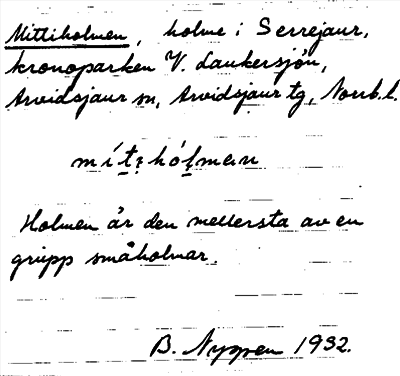 Mittiholmen, holme i Serrejaur,
kronoparken V. Laukersjön,
Arvidsjaur sn, Arvidsjaur tg, Norrb. l.
mít:hólman
Holmen är den mellersta av en
grupp småholmar.
B. Nyppen 1932.